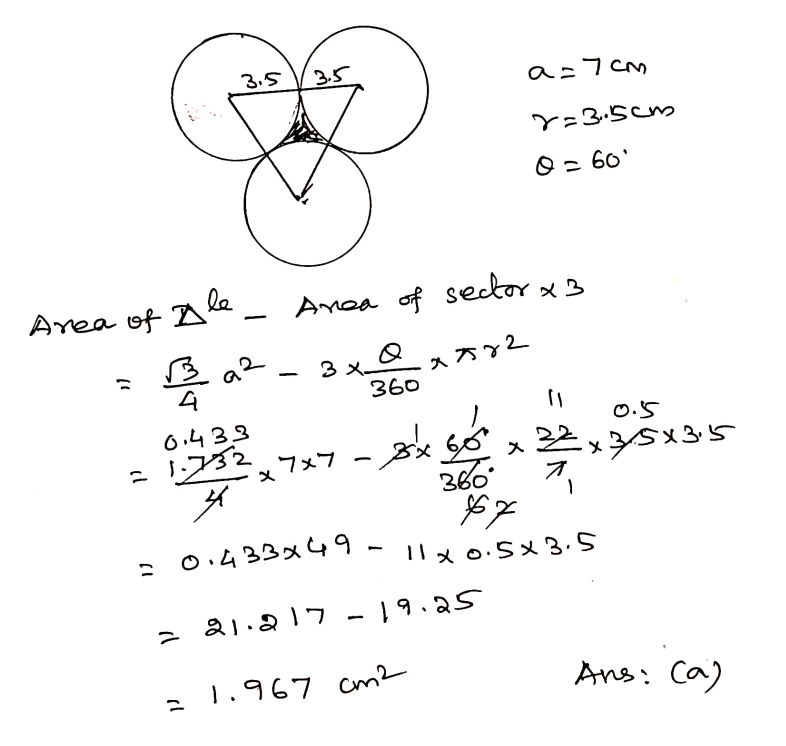 3.5 3.5
a = 7 cm
r = 3.5 cm
θ = 60°
Area of Δle – Area of sector x 3
= √3/4 a² – 3 x θ/360 x πr²
= 1.732/4 x 7x7 – 3 x 60°/360° x 22/7 x 3.5 x 3.5
0.433 1 1 11 0.5
6 2 1
= 0.433x49 – 11 x 0.5 x 3.5
= 21.217 – 19.25
= 1.967 cm²
Ans: (a)